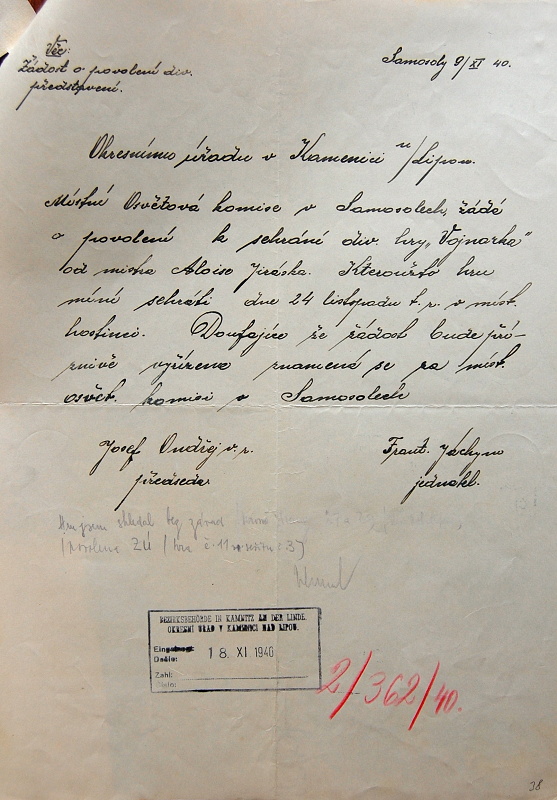 Věc:
Žádost o povolení div.
představení.
Samosoly 9/XI 40.
Okresnímu úřadu v Kamenici n/Lipou.
Místní Osvětová komise v Samosolech, žádá
o povolení k sehrání div. hry „Vojnarka"
od mistra Aloise Jiráska. Kteroužto hru
míní sehráti dne 24 listopadu t. r. v míst.
hostinci. Doufajíce že žádost bude pří-
znivě vyřízena znamená se za míst.
osvět. komisi v Samosolech
Josef Ondřej v. r.
předseda
Frant. Jáchym
jednatel.
Hru jsem shledal bez závad
(povolena ZÚ
BEZIRKSBEHÖRDE IN KAMNITZ AN DER LINDE.
OKRESNÍ ÚŘAD V KAMENICI NAD LIPOU.
Eingelangt:
Došlo: 18. XI. 1940
Zahl:
Číslo:
2/362/40.
38